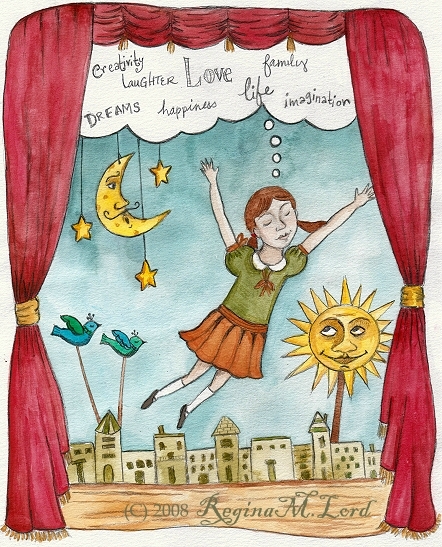 Creativity LAUGHTER Love family
DREAMS happiness life imagination
(C) 2008 Regina M. Lord